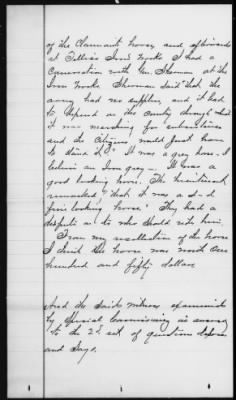 of the Claimants horse, and afterwards
at Tellico Iron Works I had a
Conversation with Gen. Sherman at the
Iron Works. Sherman said "that the
army had no supplies, and it had
to depend on the Country through which
it was marching for subsistence
and the Citizens would just have
to stand it." It was a grey horse - I
believe an Iron grey - It was a
good looking horse. The Lieutenant
remarked "that it was a d-d
fine looking horse" They had a
dispute as to who should ride him.
From my recollection of the horse
I think the horse was worth one
hundred and fifty dollars
And the said witness examined
by Special Commissioner in answer
to the 2d set of questions deposes
and says.